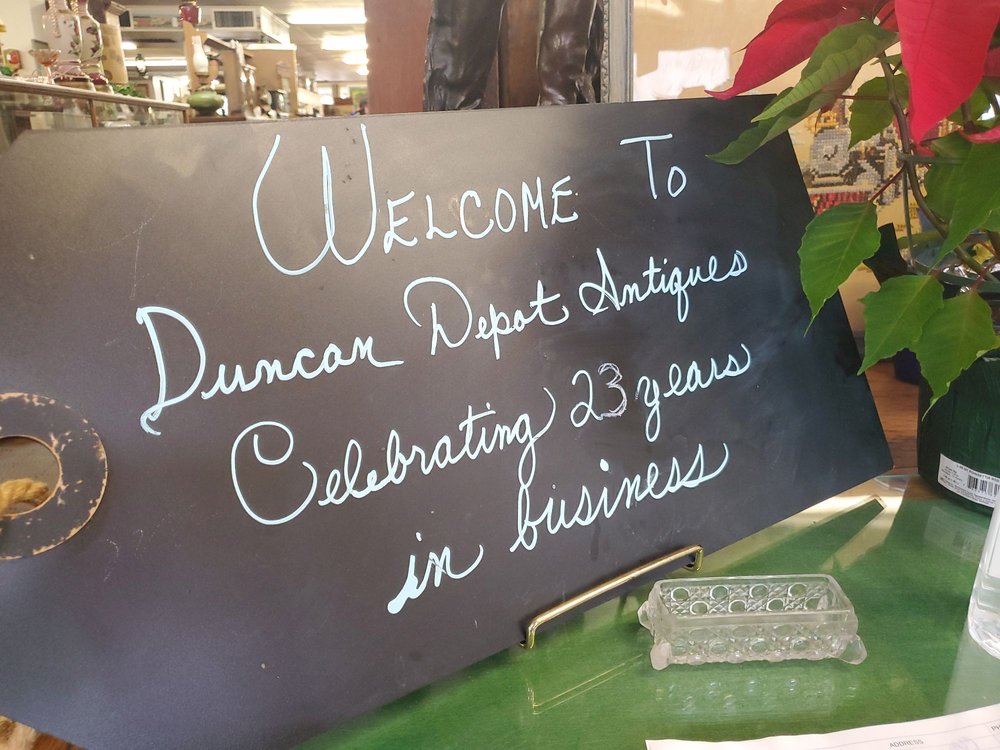 WELCOME TO
Duncan Depot Antiques
Celebrating 23 years
in business
ADDRESS